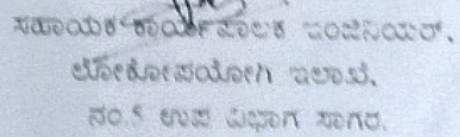 ಸಹಾಯಕ ಕಾರ್ಯಪಾಲಕ ಇಂಜಿನಿಯರ್,
ಲೋಕೋಪಯೋಗಿ ಇಲಾಖೆ,
ನಂ.5 ಉಪ ವಿಭಾಗ ಸಾಗರ.